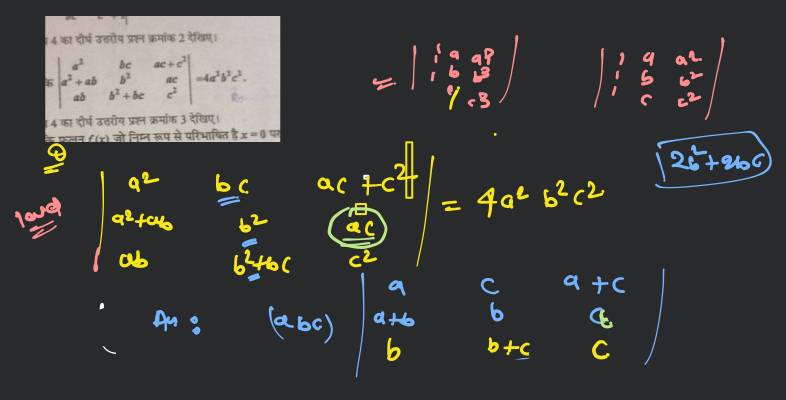 4 का दीर्घ उत्तरीय प्रश्न क्रमांक 2 देखिए।
a² bc ac+c²
a²+ab b² ac =4a²b²c².
ab b²+bc c²
4 का दीर्घ उत्तरीय प्रश्न क्रमांक 3 देखिए।
f(x) जो निम्न रूप से परिभाषित है x = 0 पर
= | 1 a a³ |
1 b b³
c³
| 1 a a² |
1 b b²
1 c c²
2b²+2bc
a² bc ac+c²
a²+ab b² ac = 4a² b²c²
ab b²+bc c²
Ans: (abc) | a c a+c |
a+b b a
b b+c c